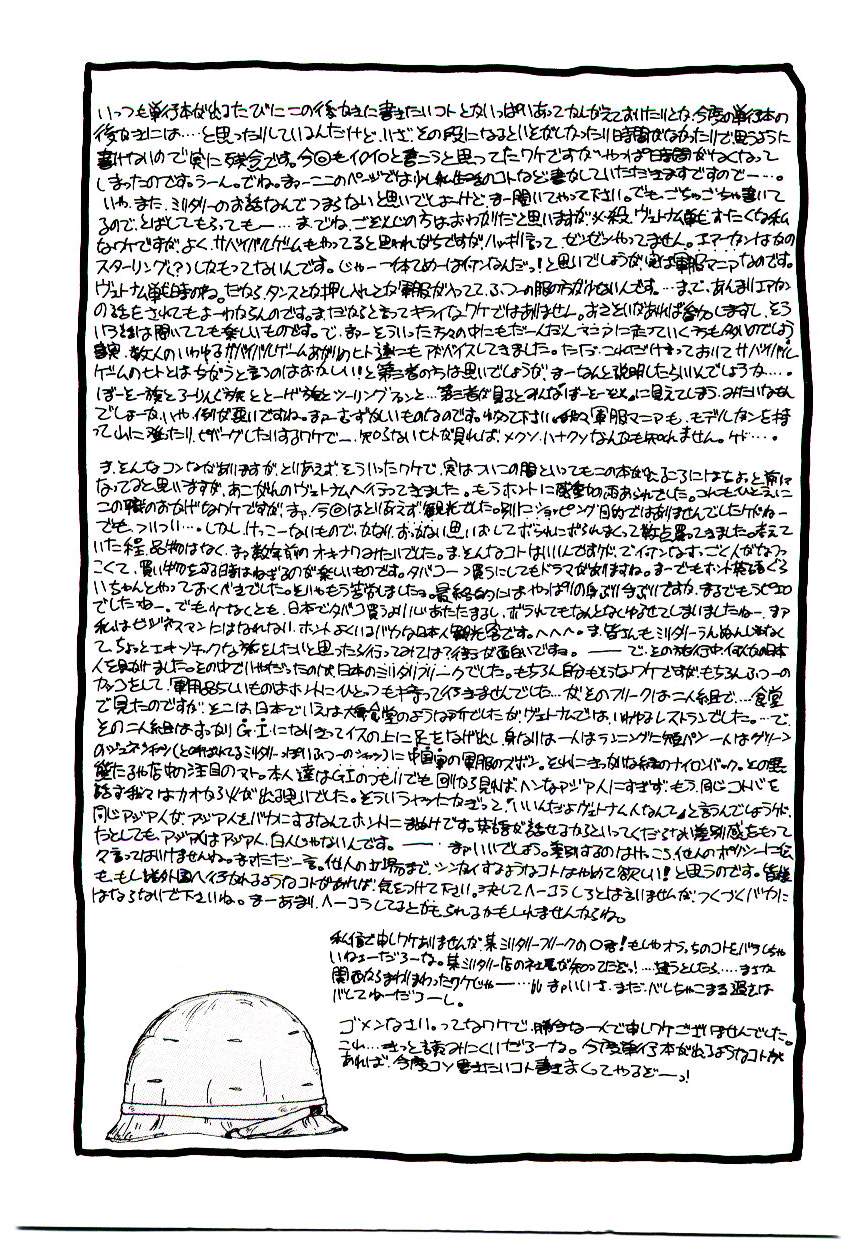 いっつも単行本が出るたびにこの後がきに書きたいコトとかいっぱいあってかんがえておいたりとか、今度の単行本の
後がきには……と思ったりしているんだけど、いざその段になるといそがしかったり時間がなかったりで思うように
書けないので実に残念です。今回もイロイロと書こうと思ってたワケですがやっぱ時間がなくなって
しまったのです。うーん。でね。まァーここのページでは少し私生活のコトなど書かしていただきますですのでー…。
いや、また、ミリタリーのお話なんでつまらないと思いでしょーけど、まー聞いてやって下さい。でもごちゃごちゃ書いて
るので、とばしてもらってもー……。までね、ごぞんじの方はおわかりだと思いますが必殺、ヴェトナム戦争すたくな私
なワケですが、よく、サバイバルゲームもやってると思われがちですが、ハッキリ言って、ゼンゼンやってません。エアーガンはかの
スターリング(?)しかもってないんです。じゃー一体てめーはナンなんだっ!と思いでしょうが、実は軍服マニアなのです。
ヴェトナム戦争時のね。だから、タンスとか押し入れとか軍服がへってて、ふつーの服の方が少ないんです。…まで、あんまりエアガン
の話をされてもよーわからんのです。まただからと言ってキライなワケではありません。おさそいがあれば参加しますし、そう
いう話は聞いてても楽しいものです。で、まァーそういった方々の中にもだーんだんマニアに走っていく方も多いのでしょう
事実、数人のいわゆるサバイバルゲームあがりのヒト達にもアドバイスしてきました。ただ、これだけ言っておいてサバイバル
ゲームのヒトとはちがうと言うのはおかしい!と第三者の方は思いでしょうが、まーなんと説明したらいいんでしょうか…。
ぼーそー族とろーりんぐ族ととーげ族とツーリングランと…第三者が見るとみんな“ぼーそーぞく”に見えてしまう、みたいなもん
でしょーか、いや、例が悪いですね。まァーむずかしいものなのです。
って山に登ったり、ビバーグしたりするワケでー、知らないヒトが見れば、メクソ、ハナクソなんかも知れません。ケド…。
ま、そんなコンながありますが、とりあえずそういったワケで、実はついこの間といってもこの本が出るころにはちょっと前に
なってると思いますが、あこがれのヴェトナムへ行ってきました。もうホントに感動の雨あられでした。これもひとえに
この職のおかげなワケですが、まァ、今回はとりあえず観光でした。別にショッピング目的ではありませんでしたケドねー
でも、ついつい…。しかし、けっこーないもので、かなりおっかない思いおしてボられにボられまくって数点買ってきました。考えて
いた程、品物はなく、まァ数年前のオキナワみたいでした。ま、そんなコトはいいんですケド、でイガンなすっごく人がなつっ
こくて、買い物をする時はねぎるのが楽しいものです。タバコ一つ買うにしてもドラマがありますね。まーでもホント英語ぐら
いちゃんとやっておくべきでした。そりゃもう苦労しました。最終的にはやっぱり身ぶり手ぶりですか、まるでもうピエロ
でしたねー。でも少なくとも、日本でタバコ買うよりいいあたたまるし、ボられてもなんとなくゆるせてしまいましたねー、まァ
私はビジネスマンにはなれない、ホントよくいるバカな日本人観光客です。へへへ。ま、皆さんもミリタリーうんぬんじゃなく
て、ちょっとエキゾチックな旅をしたいと思ったら行ってみては？行ニが面白いですね。―― で、その旅行中、何人かの日本
人を見かけました。その中でいやだったのが、日本のミリタリーフリークでした。もちろん自分もそうなワケですがもちろんふつーの
カッコをして、軍用品らしいものはホントにひとつも持って行きませんでした…がそのフリークは二人組で……食堂
で見たのですが、そこは、日本でいえば大衆食堂のような所でしたが、ヴェトナムでは、いわゆるレストランでした。…で、
その二人組はすっかりG・Iになりきってイスの上に足をなげ出し、身なりは一人はランニングに短パン一人はグリーン
のジャングルシャツ(と呼ばれてるミリタリーっぽいふつーのシャツ)に中国軍の軍服のズボン。それにきったない緑のナイロンバック。その悪
態たるや店中の注目のマト。本人達はG.Iのつもりでも回りから見れば、ヘンなアジア人にすぎず、もう、同じコトバを
話す我々はカオから火が出る思いでした。そういうヤツにかぎって、「いいんだよヴェトナム人なんて」と言うんでしょうケド、
同じアジア人が、アジア人をバカにするなんてホントにまぬけです。英語が話せるからといってくだらない差別感をもって
たとしても、アジア人はアジア人、白人じゃないんです。―― まァいいでしょう。差別するのはけっこう、他人のポリシーに広
々言ってはいけませんね。まァただ一言。他人の立場まで、シンガイするようなコトはやめて欲しい!と思うのです。皆様
も、もし、外国へ行かれるようなコトがあれば、気をつけて下さい。決してヘーコラしろとは言いませんが、つくづくバカに
はならないで下さいね。まーあまり、ヘーコラしてるとかもられるかもしれませんからね。
私信で申しワケありませんが、某ミリタリーフリークの○君!もしやオラっちのコトをバラしちゃ
いねぇーだろーな。某ミリタリー店の社長が知ってたぞっ!…違うとしたら……まさか
関西からまわりまわったワケじゃー……ルまァいいさ、まだ、バレちゃこまる過去は
バレてねーだろーし。
ゴメンなさい。ってなワケで、勝手な一人で申しワケございませんでした。
これ…きっと読みにくいだろーな。今度単行本が出るようなコトが
あれば、今度コソ書きたいコト書きまくってやるぞーっ!